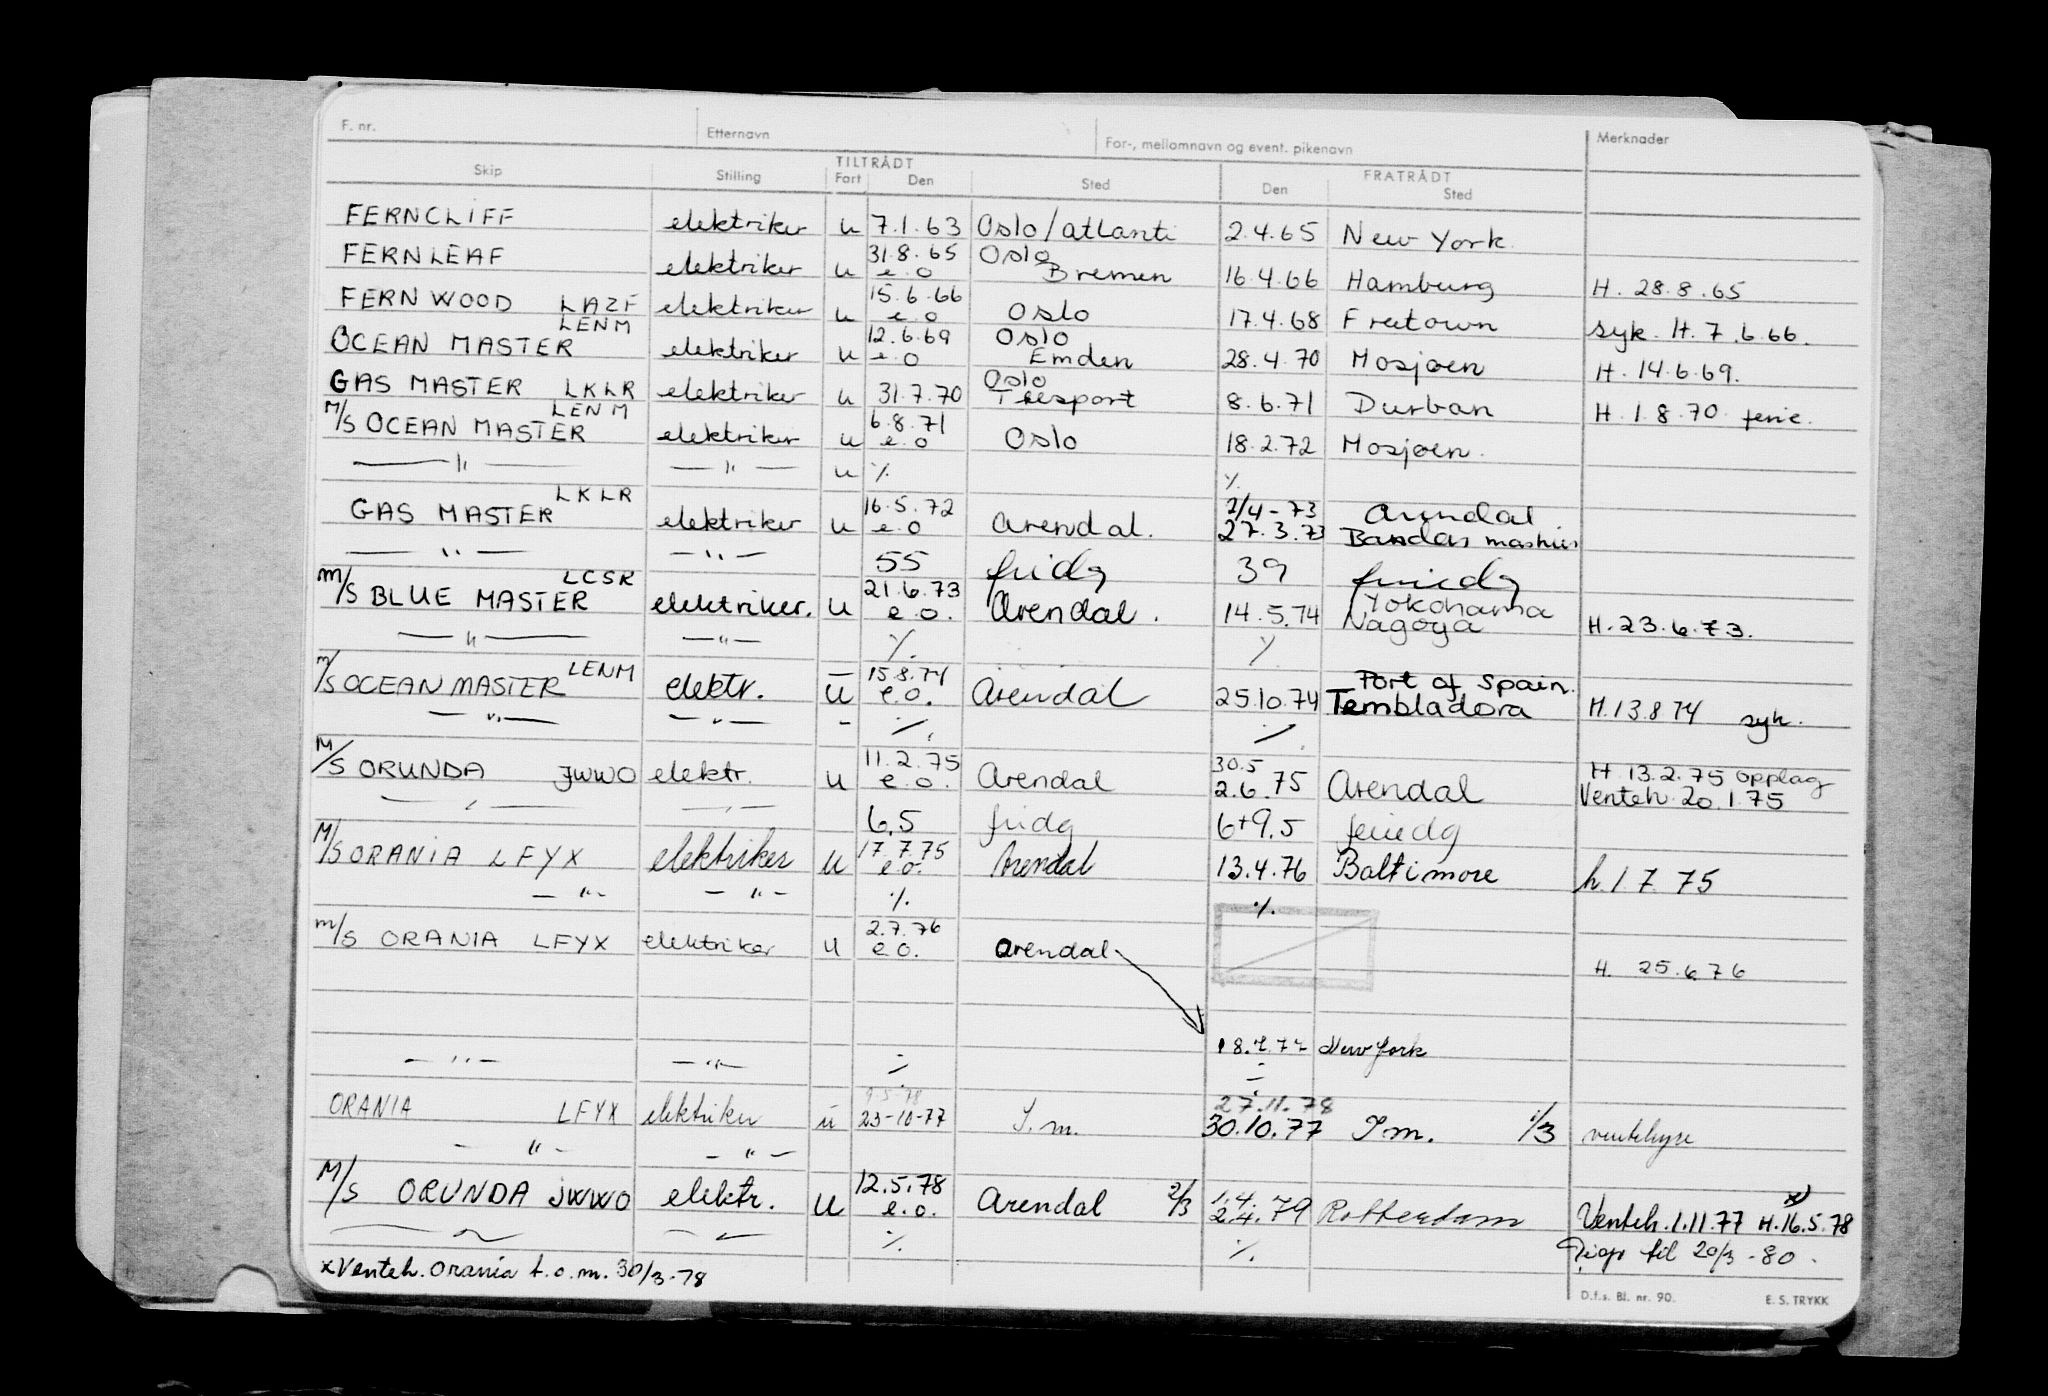 F. nr. Etternavn For-, mellomnavn og event. pikenavn Merknader
TILTRÅDT FRATRÅDT
Skip Stilling Fart Den Sted Den Sted
FERNCLIFF elektriker u 7.1.63 Oslo/atlanti 2.4.65 New York
31.8.65 Oslo
FERNLEAF elektriker u e.o Bremen 16.4.66 Hamburg H. 28.8.65
15.6.66
FERNWOOD LAZF elektriker u e.o Oslo 17.4.68 Freetown syk. H. 7.6.66.
LENM 12.6.69 Oslo
OCEAN MASTER elektriker u e.o Emden 28.4.70 Mosjøen H. 14.6.69.
Oslo
GAS MASTER LKLR elektriker u 31.7.70 8.6.71 Durban H. 1.8.70 ferie.
LENM 6.8.71
M/S OCEAN MASTER elektriker u e.o Oslo 18.2.72 Mosjøen.
—"— —"— u ٪ ٪
LKLR 16.5.72 2/4-73 Arendal
GAS MASTER elektriker u e.o Arendal. 27.3.73 Bandar
—"— —"— 55 fridg 39 feriedg
LCSR 21.6.73 Yokohama
M/S BLUE MASTER elektriker. u e.o. Arendal. 14.5.74 Nagoya H.23.6.73.
—"— —"— ٪ ٪
LENM 15.8.74 Port of Spain.
M/S OCEAN MASTER elektr. u e.o. Arendal 25.10.74 Tembladora H.13.8.74 syk.
—"— —"— - ٪ ٪
11.2.75 30.5 H.13.2.75 opplag
M/S ORUNDA JWWO elektr. u e.o. Arendal 2.6.75 Arendal Venteh. 20.1.75
—"— —"— 6,5 fridg 6+9,5 feriedg
17.7.75
M/S ORANIA LFYX elektriker u e.o. Arendal 13.4.76 Baltimore h.1775
—"— —"— ٪ ٪
2.7.76
M/S ORANIA LFYX elektriker u e.o. Arendal
H. 25.6.76
New York
—"— —"— ٪ ٪
9.5.78 27.11.78
ORANIA LFYX elektriker u 23-10-77 I.m. 30.10.77 I.m. 1/3 ventehyre
—"— —"—
12.5.78 1.4. x)
M/S ORUNDA JWWO elektr. u e.o. Arendal 2/3 2.4.79 Rotterdam Venteh.1.11.77 H.16.5.78
—"— —"— ٪ ٪ til 20/3-80.
x Venteh. Orania t.o.m. 30/3-78
D.f.s. Bl. nr. 90. E. S. TRYKK